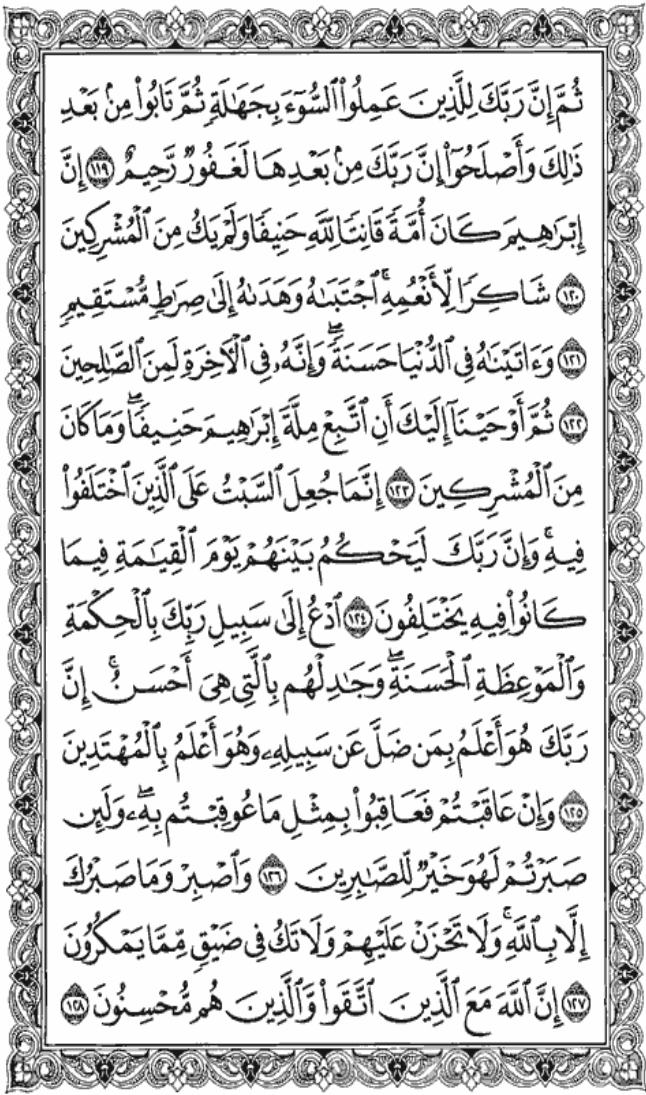 ثُمَّ إِنَّ رَبَّكَ لِلَّذِينَ عَمِلُوا۟ ٱلسُّوٓءَ بِجَهَٰلَةٍ ثُمَّ تَابُوا۟ مِنۢ بَعْدِ
ذَٰلِكَ وَأَصْلَحُوٓا۟ إِنَّ رَبَّكَ مِنۢ بَعْدِهَا لَغَفُورٌ رَّحِيمٌ ١١٩ إِنَّ
إِبْرَٰهِيمَ كَانَ أُمَّةً قَانِتًا لِّلَّهِ حَنِيفًا وَلَمْ يَكُ مِنَ ٱلْمُشْرِكِينَ
١٢٠ شَاكِرًا لِّأَنْعُمِهِ ۚ ٱجْتَبَىٰهُ وَهَدَىٰهُ إِلَىٰ صِرَٰطٍ مُّسْتَقِيمٍ
١٢١ وَءَاتَيْنَٰهُ فِى ٱلدُّنْيَا حَسَنَةً ۖ وَإِنَّهُۥ فِى ٱلْءَاخِرَةِ لَمِنَ ٱلصَّٰلِحِينَ
١٢٢ ثُمَّ أَوْحَيْنَآ إِلَيْكَ أَنِ ٱتَّبِعْ مِلَّةَ إِبْرَٰهِيمَ حَنِيفًا ۖ وَمَا كَانَ
مِنَ ٱلْمُشْرِكِينَ ١٢٣ إِنَّمَا جُعِلَ ٱلسَّبْتُ عَلَى ٱلَّذِينَ ٱخْتَلَفُوا۟
فِيهِ ۚ وَإِنَّ رَبَّكَ لَيَحْكُمُ بَيْنَهُمْ يَوْمَ ٱلْقِيَٰمَةِ فِيمَا
كَانُوا۟ فِيهِ يَخْتَلِفُونَ ١٢٤ ٱدْعُ إِلَىٰ سَبِيلِ رَبِّكَ بِٱلْحِكْمَةِ
وَٱلْمَوْعِظَةِ ٱلْحَسَنَةِ ۖ وَجَٰدِلْهُم بِٱلَّتِى هِىَ أَحْسَنُ ۚ إِنَّ
رَبَّكَ هُوَ أَعْلَمُ بِمَن ضَلَّ عَن سَبِيلِهِۦ وَهُوَ أَعْلَمُ بِٱلْمُهْتَدِينَ
١٢٥ وَإِنْ عَاقَبْتُمْ فَعَاقِبُوا۟ بِمِثْلِ مَا عُوقِبْتُم بِهِۦ ۖ وَلَئِن
صَبَرْتُمْ لَهُوَ خَيْرٌ لِّلصَّٰبِرِينَ ١٢٦ وَٱصْبِرْ وَمَا صَبْرُكَ
إِلَّا بِٱللَّهِ ۚ وَلَا تَحْزَنْ عَلَيْهِمْ وَلَا تَكُ فِى ضَيْقٍ مِّمَّا يَمْكُرُونَ
١٢٧ إِنَّ ٱللَّهَ مَعَ ٱلَّذِينَ ٱتَّقَوا۟ وَّٱلَّذِينَ هُم مُّحْسِنُونَ ١٢٨